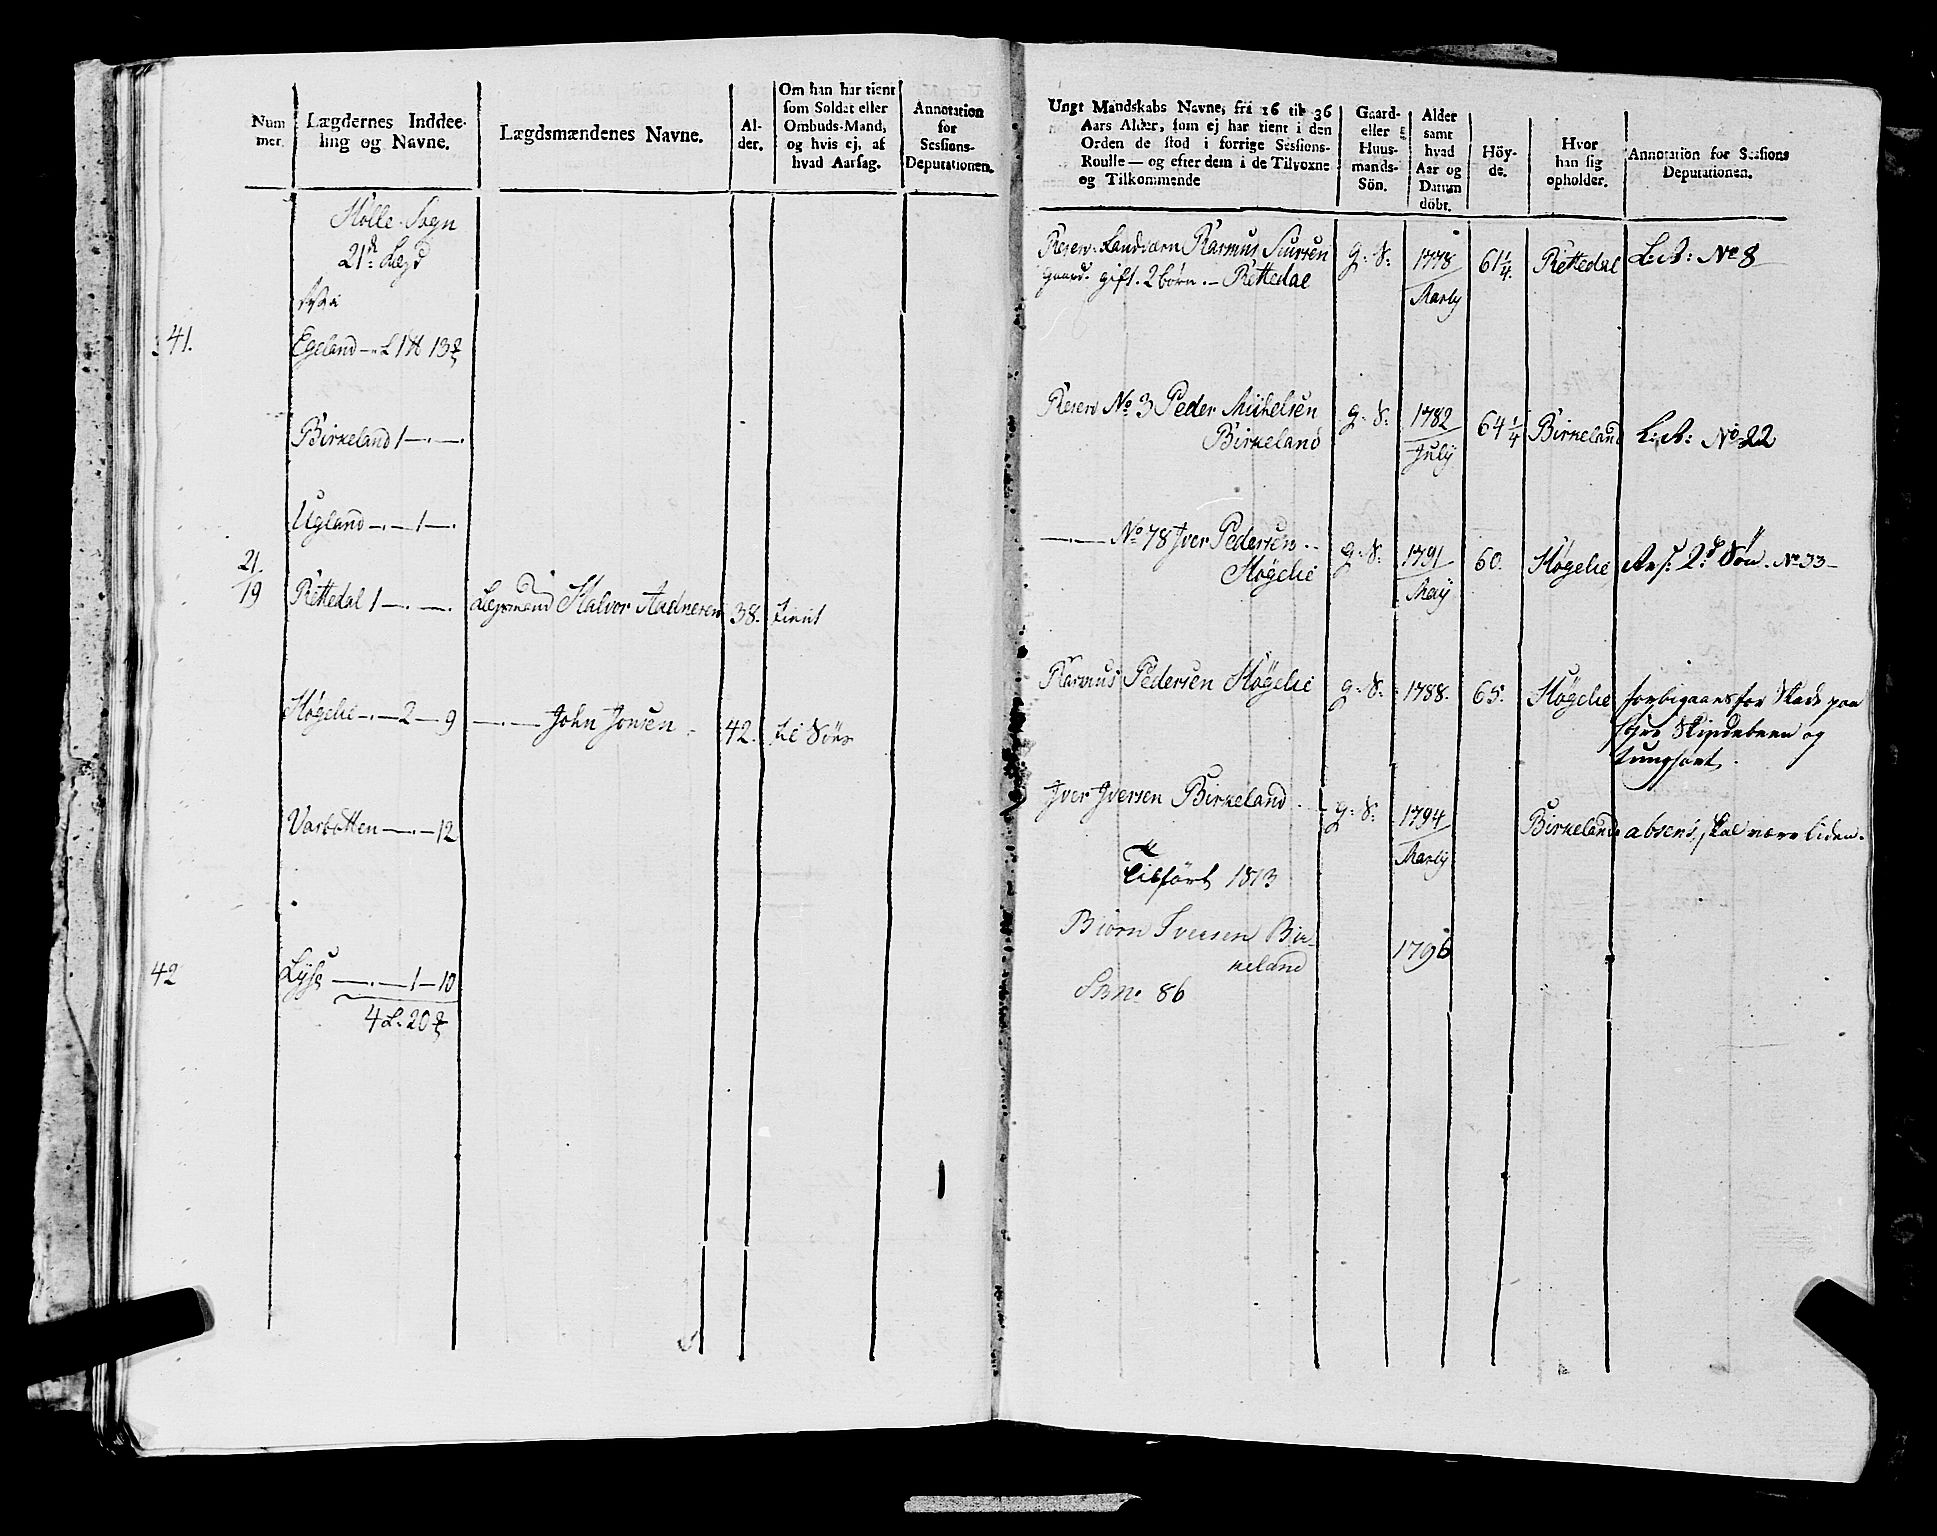 Num
mer.
Lægdernes Inddee-
ling og Navne.
Lægdsmændenes Navne.
Al-
der.
Om han har tient
som Soldat eller
Ombuds-Mand,
og hvis ej, af
hvad Aarsag.
Annotation
for
Sessions-
Deputationen.
Holle Sogn
21de Lægd
41.
Egeland 1 13
Birkeland 1
Ugland 1
21
19
Rettedal 1
Lægsmand Halvor Aadnesen
38.
tient
Høgelie 2 9
John Jonsen
42.
Varbotten 12
42
Lyse 1 10
4 L: 20
Ungt Mandskabs Navne, fra 16 til 36
Aars Alder, som ej har tient i den
Orden de stod i forrige Sessions-
Roulle — og efter dem i de Tilvoxne
og Tilkommende
Gaard-
eller
Huus-
mands-
Sön.
Alder
samt
hvad
Aar og
Datum
döbt.
Höy-
de.
Hvor
han sig
opholder.
Annotation for Sessions
Deputationen.
Reserv: Landværn Rasmus Siursen
gaard. gift. 2 børn. Rettedal
g: S:
1778
Marty
61 1/4.
Rettedal
L: A: No 8
Reserv No 3 Peder Mikelsen
Birkeland
g: S:
1782
July
64 1/4
Birkeland
L: A: No 22
No 78 Iver Pedersen
Høgelie
g: S:
1791
May
60.
Høgelie
2d Søn. No 33
Rasmus Pedersen Høgelie
g: S:
1788.
65.
Høgelie
forbigaaes for Skade paa
Skindebeen og
tunghørt.
Iver Iversen Birkeland
g: S:
1794
Marty
Birkeland
absens, skal være liden.
Tilført 1813
Biørn Iversen Bir-
keland
1796
No 86